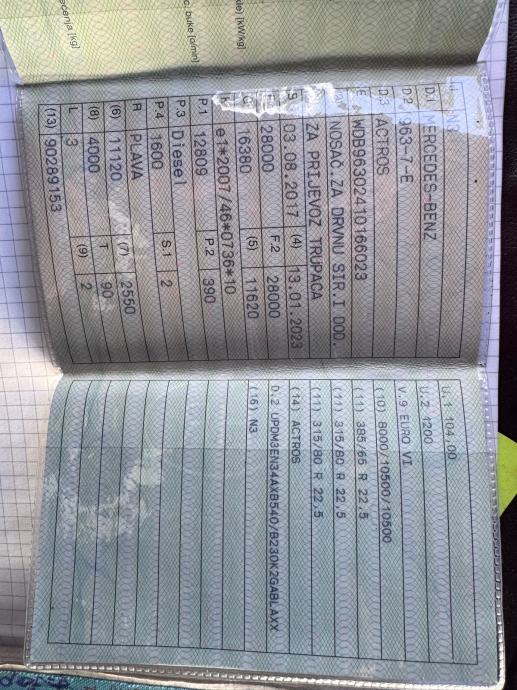 D.1 MERCEDES-BENZ
D.2 963-7-E
D.3 ACTROS
E WDB96302410166023
NOSAČ.ZA DRVNU SIR.I DOD.
ZA PRIJEVOZ TRUPACA
03.08.2017 (4) 13.01.2023
28000 F.2 28000
G 16380 (5) 11620
e1*2007/46*0736*10
P.1 12809 P.2 390
P.3 Diesel
P.4 1600 S.1 2
R PLAVA
(6) 11120 (7) 2550
(8) 4900 T 90
L 3 (9) 2
(13) 90289153
U.1 104,00
U.2 1200
V.9 EURO VI
(10) 8000/10500/10500
(11) 385/65 R 22,5
(11) 315/80 R 22,5
(11) 315/80 R 22,5
(14) ACTROS
D.2 UPDM3EN34AXB540/B230K2GABLAXX
(16) N3
[kW/kg]
buke [o/min]
[kg]